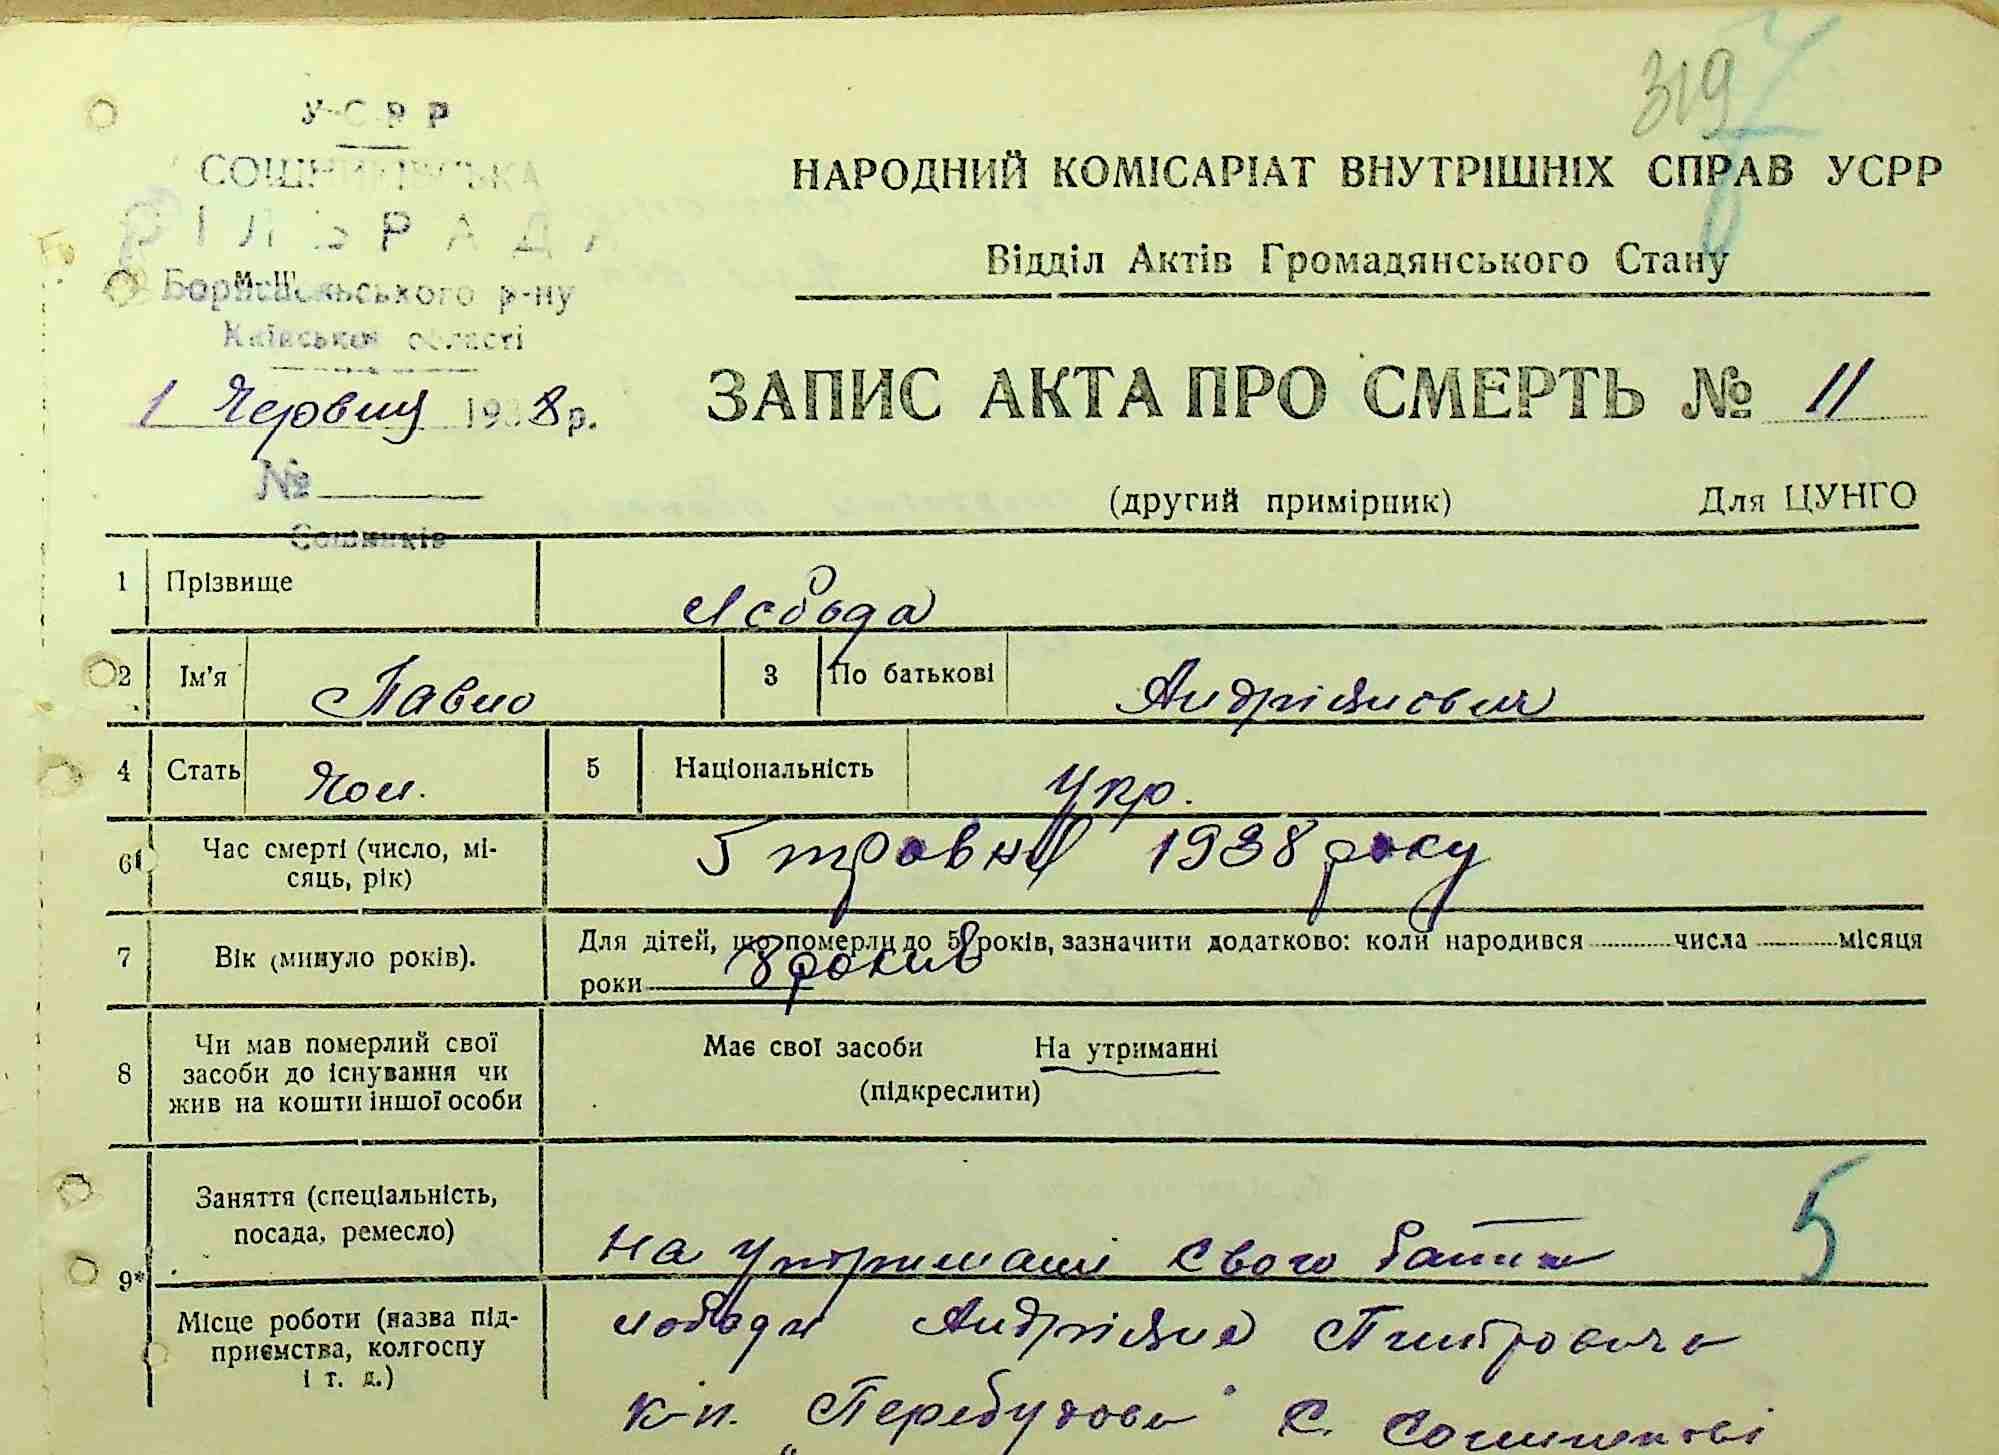 319
У·С·Р·Р
СОШНИКІВСЬКА
НАРОДНИЙ КОМІСАРІАТ ВНУТРІШНІХ СПРАВ УСРР
СІЛЬРАДА
Відділ Актів Громадянського Стану
Бориспільського р-ну
Київської області
1 Червня 1938 р.
ЗАПИС АКТА ПРО СМЕРТЬ № 11
№
(другий примірник) Для ЦУНГО
Сошників
1 Прізвище Лобода
2 Ім'я Павло 3 По батькові Андріянович
4 Стать Чол. 5 Національність Укр.
6 Час смерті (число, мі-
сяць, рік) 5 травня 1938 року
7 Вік (минуло років). Для дітей, що померли до 5 років, зазначити додатково: коли народився числа місяця
роки 8 років
8 Чи мав померлий свої
засоби до існування чи
жив на кошти іншої особи
Має свої засоби На утриманні
(підкреслити)
9* Заняття (спеціальність,
посада, ремесло)
на утриманні свого батька
5
Місце роботи (назва під-
приємства, колгоспу
і т. д.)
Лободи Андріяна
к-п. "Перебудова" с. Сошникові